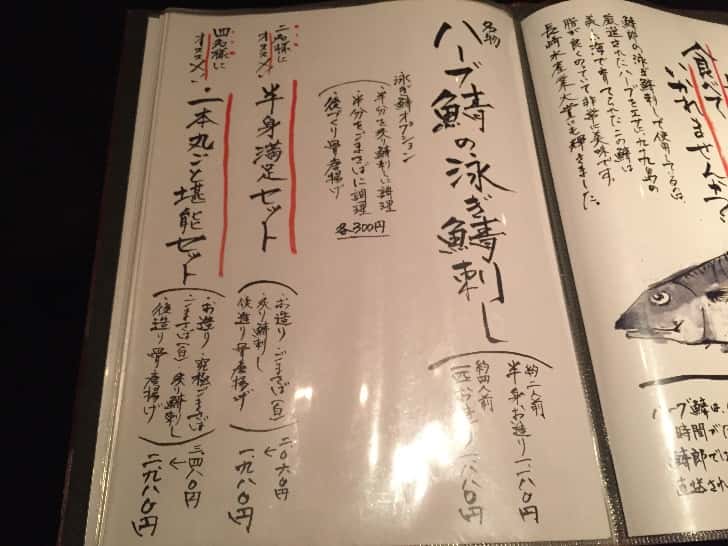 食べて
いかれませんか?
鯖郎の泳ぎ鯖刺しで使用しているのは、
厳選されたハーブをエサに、九十九島の
美しい海で育てられたこの鯖は
脂が良くのっていて非常に美味です。
長崎水産業大賞にも輝きました。
ハーブ鯖は、
時間が
鯖郎では
直送され
名物
ハーブ鯖の泳ぎ鯖刺し
約二人前
半身お造り 一、二八〇円
約四人前
泳ぎ鯖オプション
・半分を炙り鯖刺しに調理
・半分をごまさばに調理
・後づくり骨唐揚げ
各300円
二名様に
オススメ!
半身満足セット
お造り・ごまさば(白)
・炙り鯖刺し
後造り骨唐揚げ
二、〇六〇円
↓
一、九八〇円
四名様に
オススメ!
一本丸ごと堪能セット
お造り・究極ごまさば
・ごまさば(白)・炙り鯖刺し
・後造り骨唐揚げ
三、四八〇円
↓
二、九八〇円